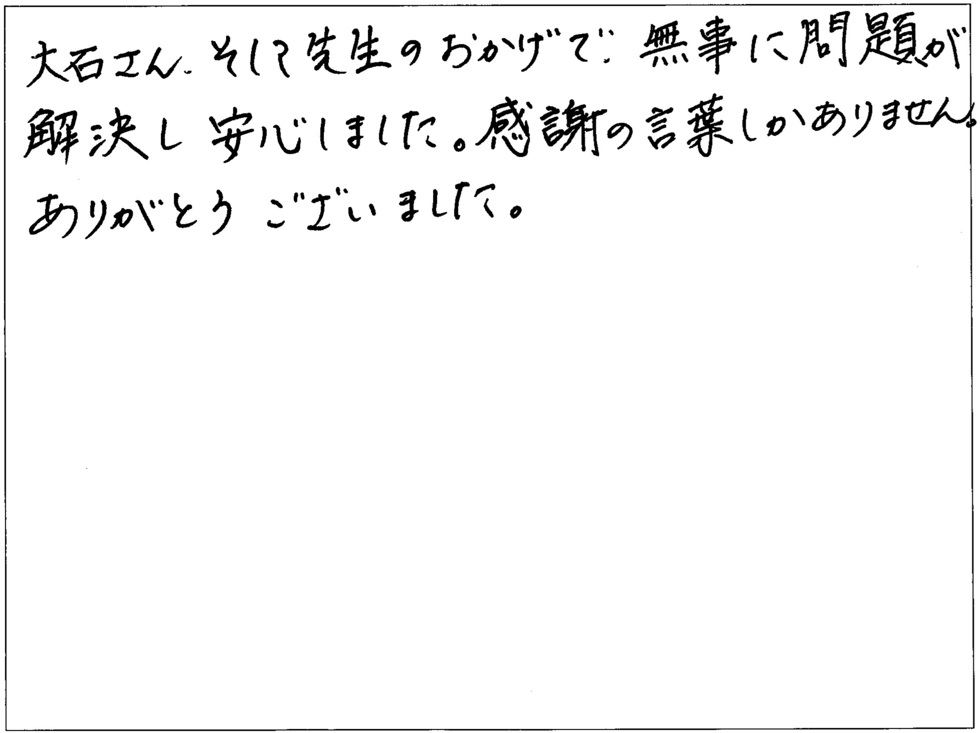 大石さん、そして先生のおかげで、無事に問題が
解決し安心しました。感謝の言葉しかありません。
ありがとうございました。